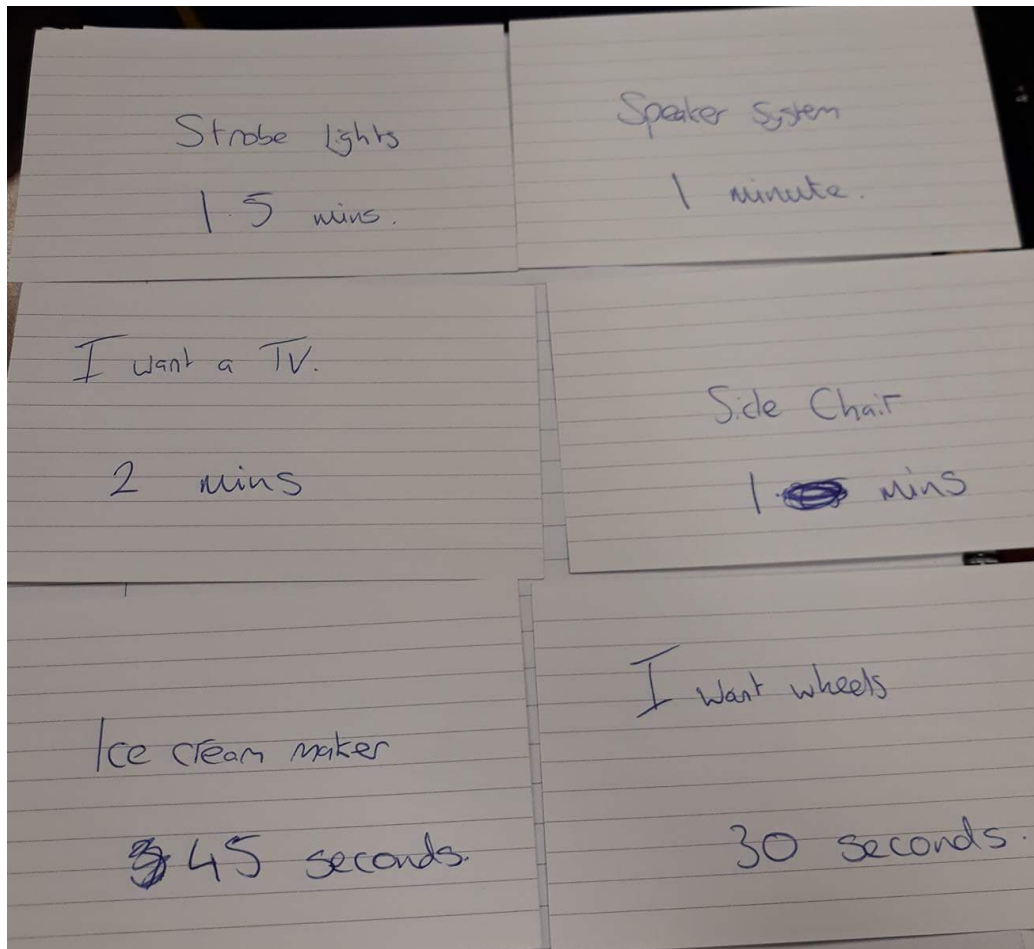 Strobe Lights
1.5 mins.
Speaker System
1 minute.
I want a TV.
2 mins
Side Chair
1 mins
Ice cream maker
45 seconds.
I want wheels
30 seconds.